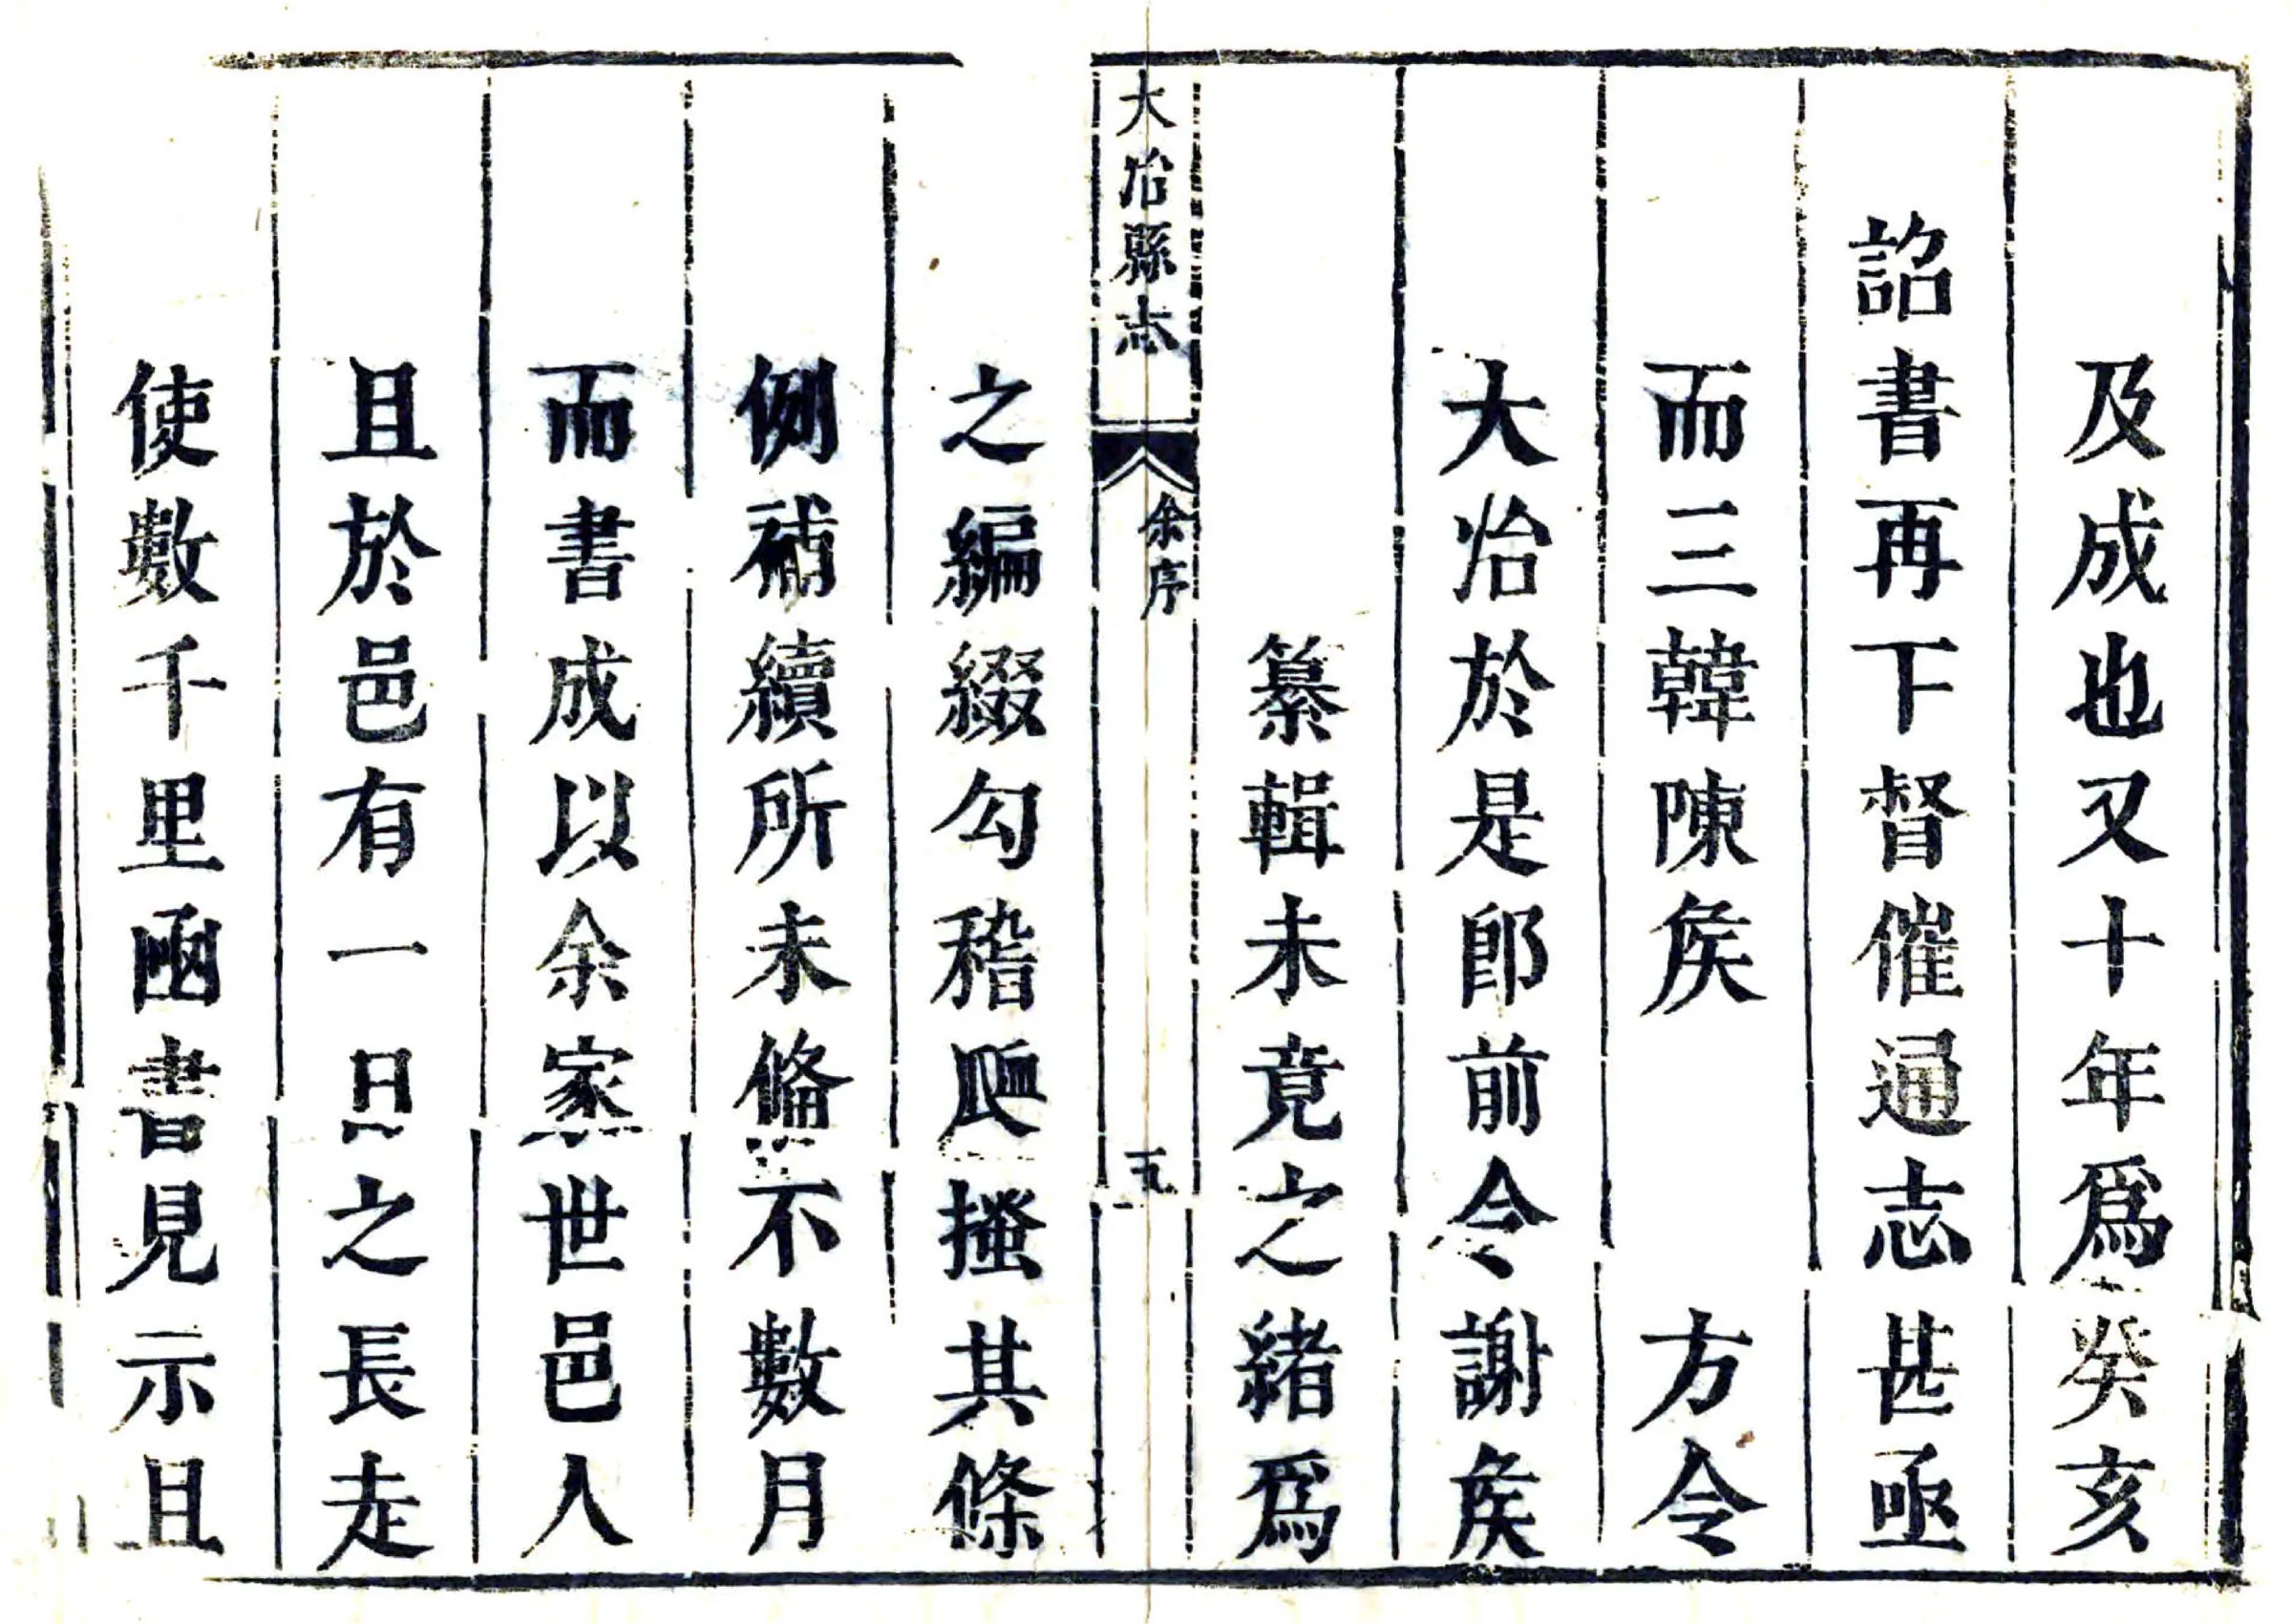 及成也又十年爲癸亥
詔書再下督催通志甚亟
而三韓陳矦　方令
大冶於是郎前令謝矦
纂輯未竟之緒爲
大冶縣志
余序
之編綴勾稽爬搔其條
例補續所未備不數月
而書成以余家世邑人
且於邑有一日之長走
使數千里函書見示且